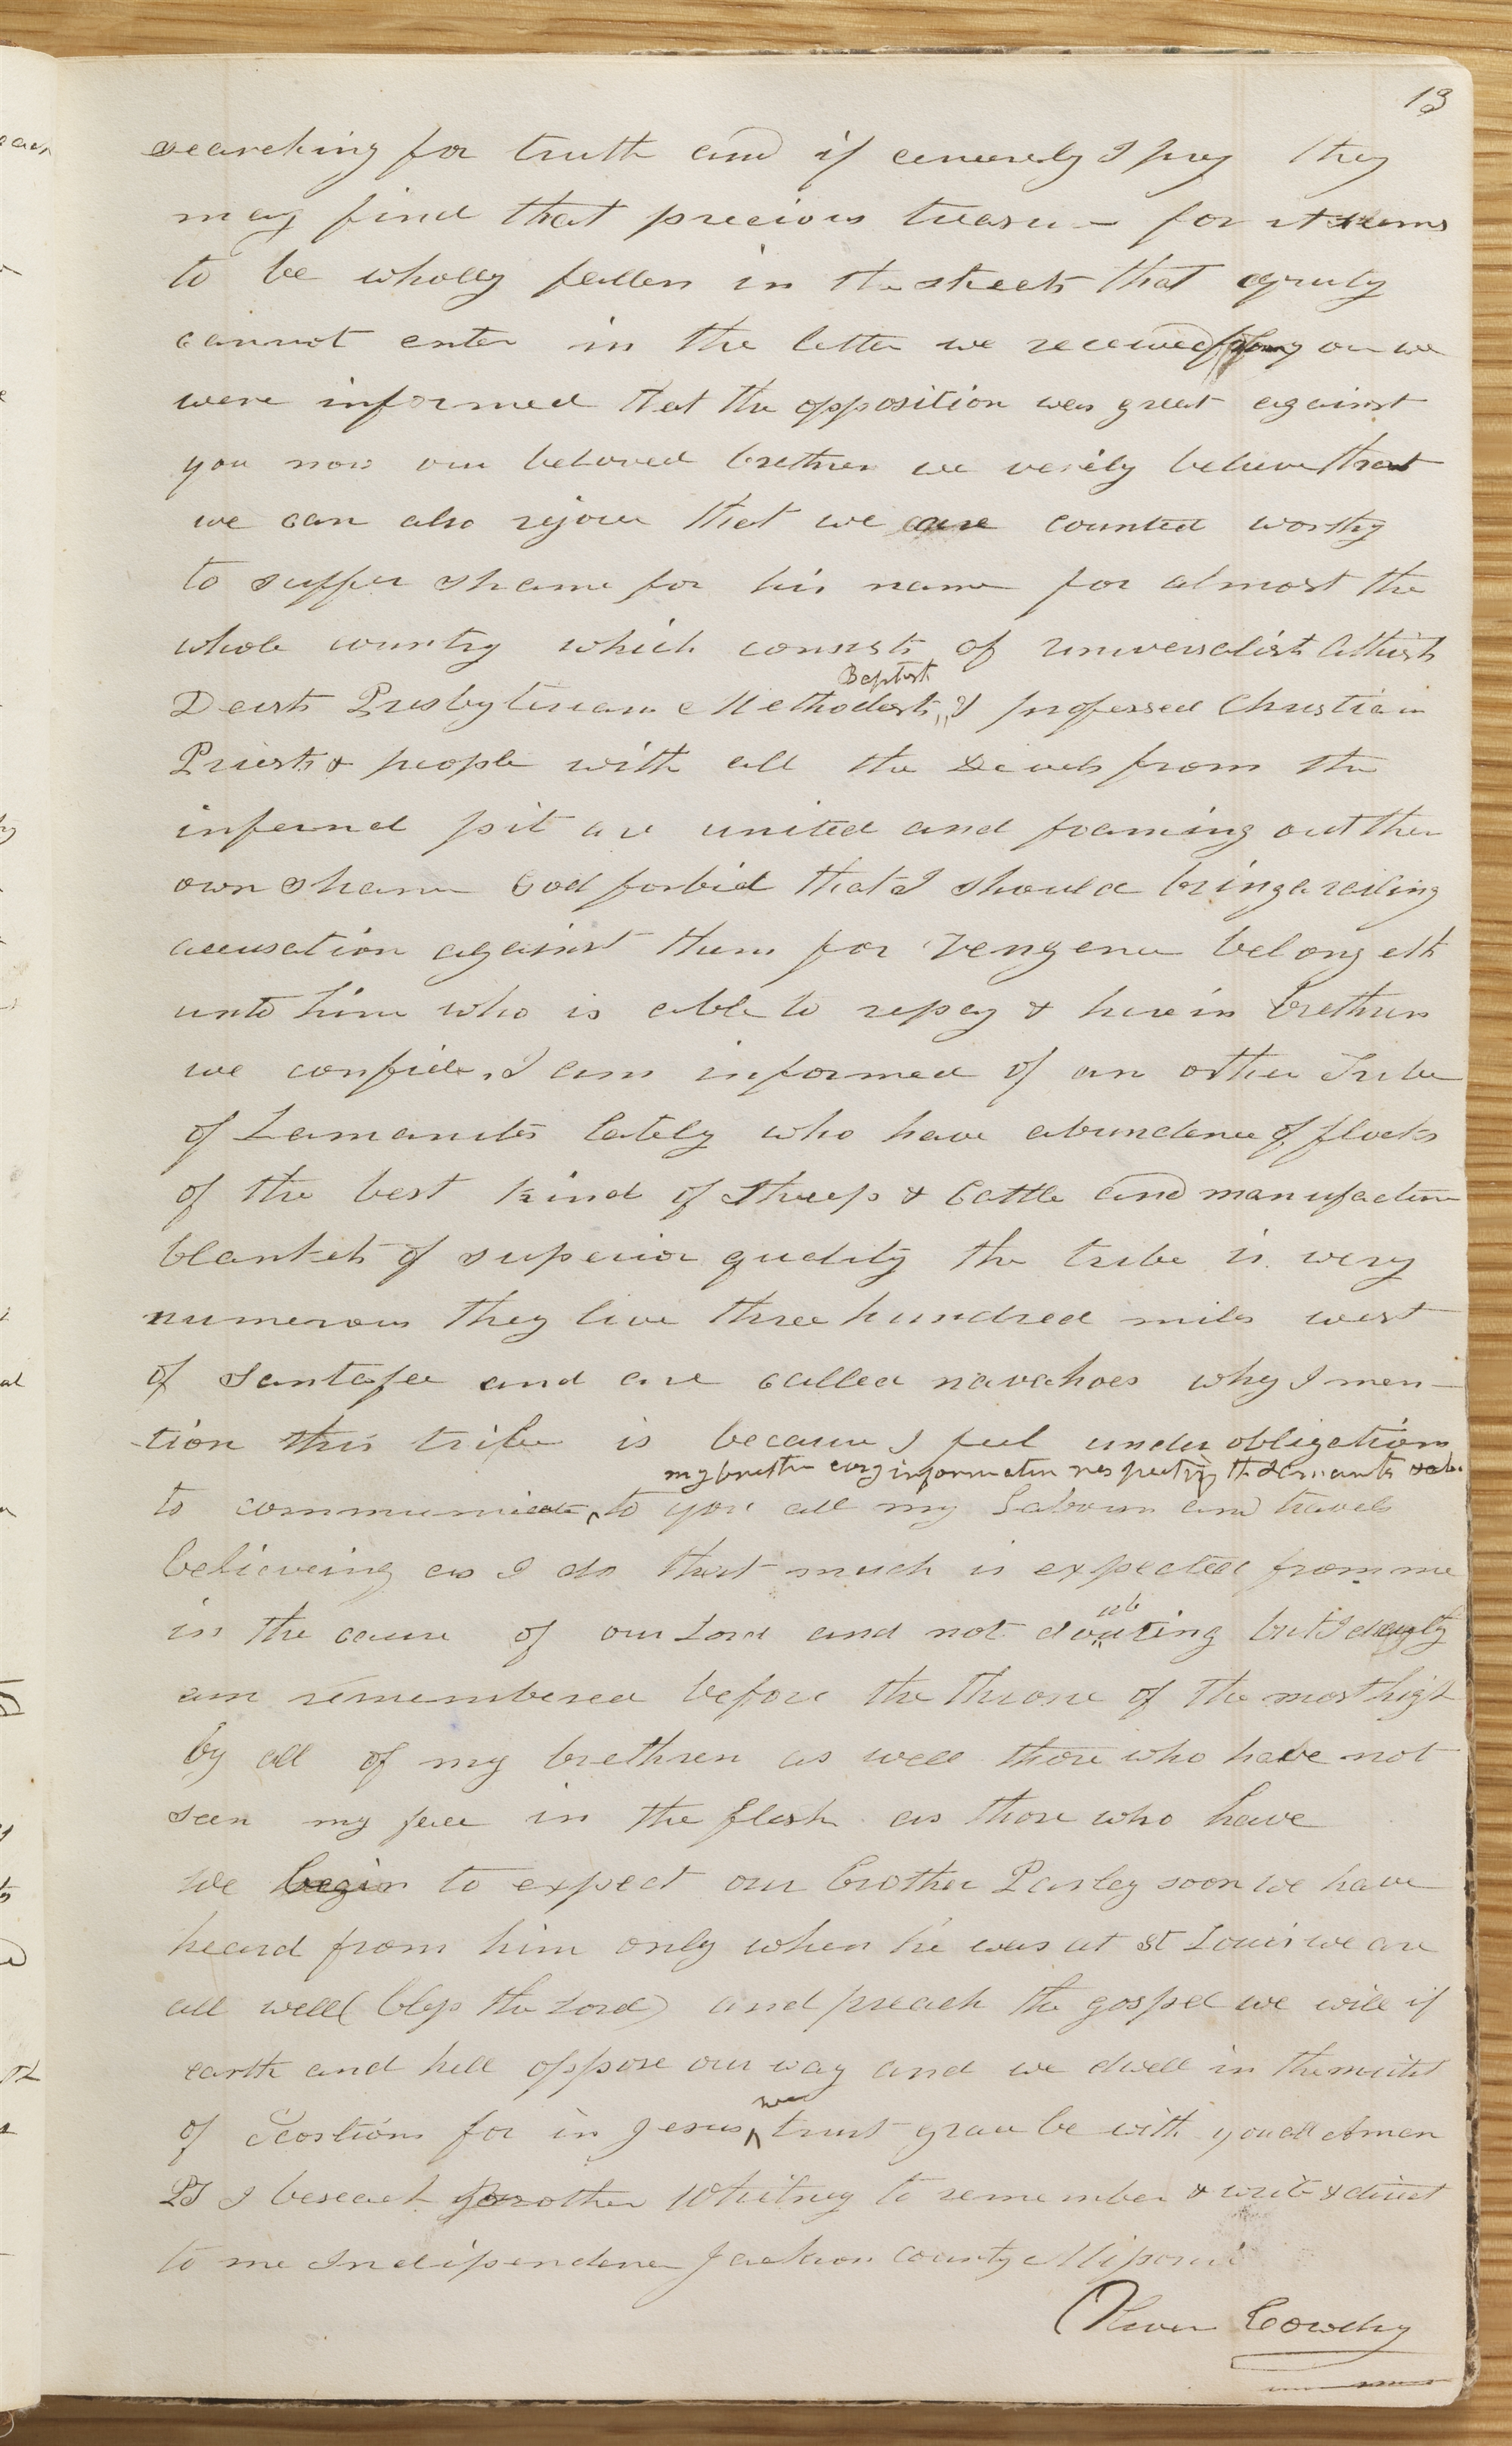 13
searching for truth and if cencerely I pray they
may find that precious treasu- for it seems
to be wholly fallen in the streets that equity
cannot enter in the letter we received from you we
were informed that the opposition was great against
you now our beloved brethren we verily believe that
we can also rejoice that we are counted worthy
to suffer shame for his name for almost the
whole country which consists of universalist Athiests
Baptist
Deists Presbyterians Methodests, & professed Christian
Priests & people with all the Devels from the
infernal pit are united and foaming out their
own shame God forbid that I should bring a railing
accusation against them for vengence belongeth
unto him who is able to repay & herein brethren
we confide, I am informed of an other Tribe
of Lamanites lately who have abundence of flocks
of the best kind of Sheep & Cattle and manufacture
blankets of superior quality the tribe is very
numerous they live three hundred miles west
of Santafee and are called navahoes why I men-
-tion this tribe is because I feel under obligations
my brethren every information respecting the Lamanites &
to communicate to you all my Labours and travels
believeing as I do that much is expected from me
in the cause of our Lord and not douting but I dayly
am remembered before the throne of the most high
by all of my brethren as well those who have not
seen my face in the flesh as those who have
we begin to expect our brother Parley soon we have
heard from him only when he was at St Louis we are
all well (bless the Lord) and preach the gospel we will if
earth and hell oppose our way and we dwell in the midst
we
of Scorpions for in Jesus trust grace be with you all Amen
PS I beseach brother Whitney to remember & write & direct
to me Indipendence Jackson County Missouri
Oliver Cowdry